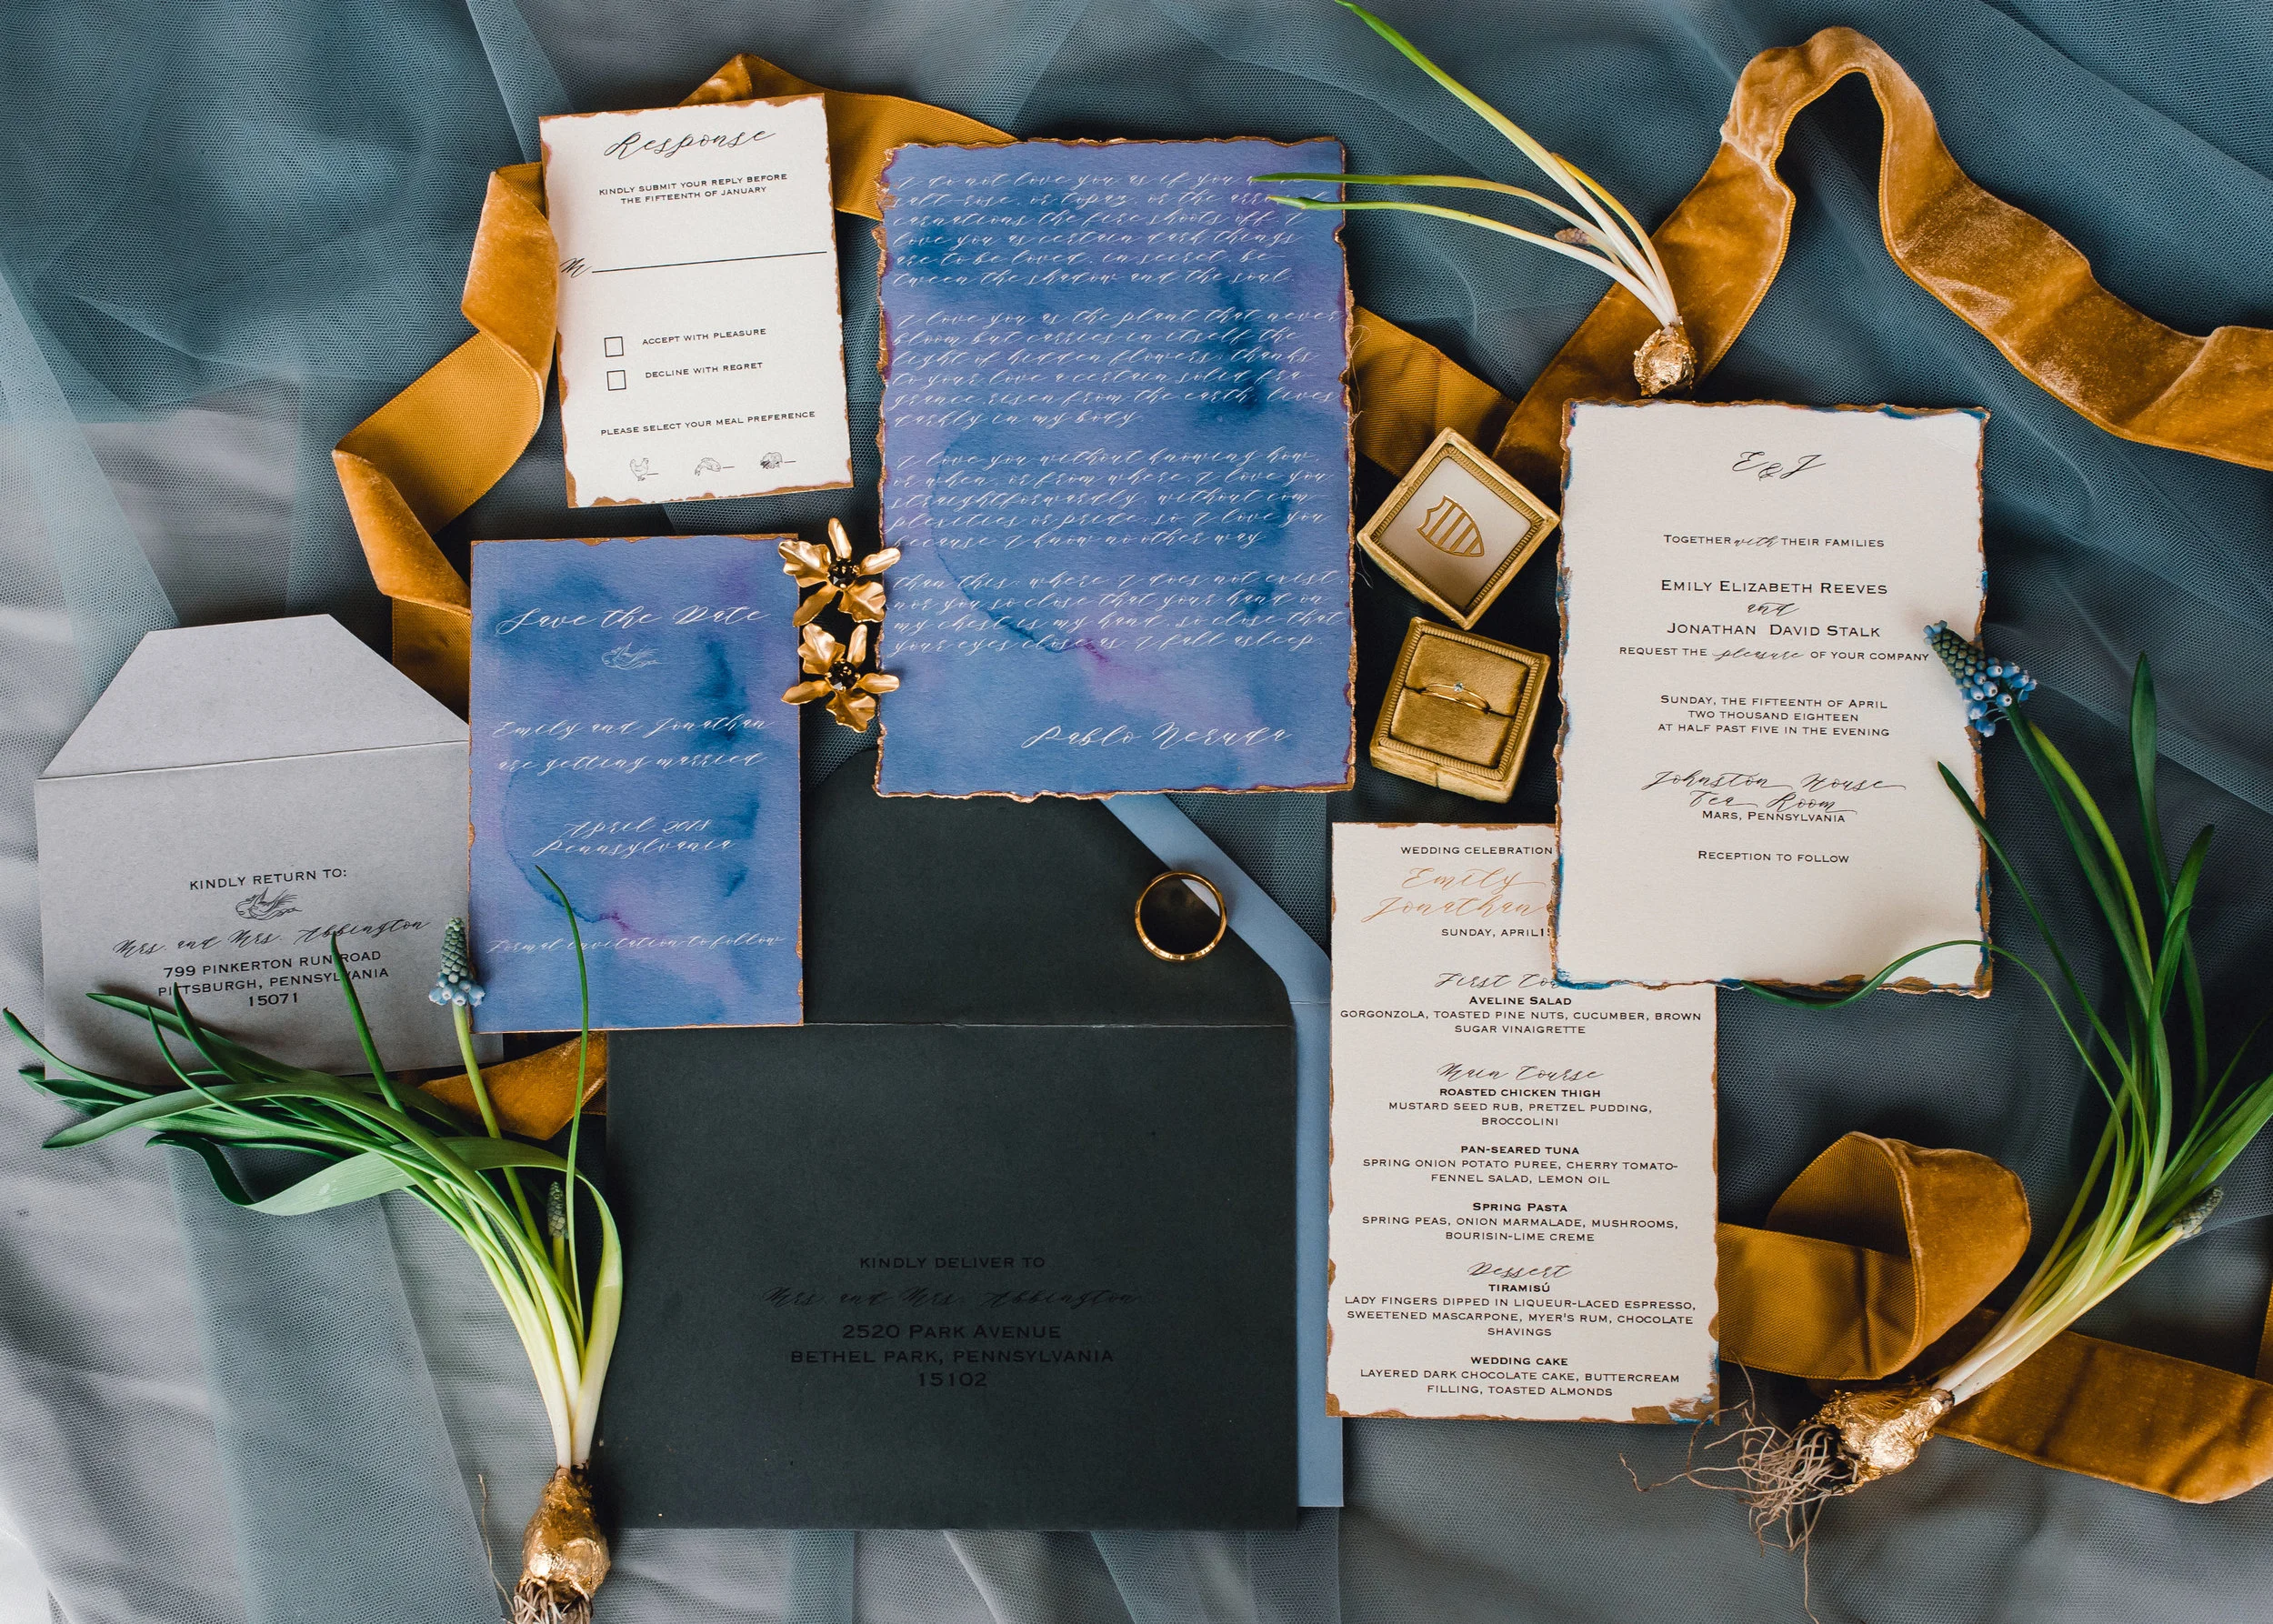 Response
KINDLY SUBMIT YOUR REPLY BEFORE
THE FIFTEENTH OF JANUARY
M
ACCEPT WITH PLEASURE
DECLINE WITH REGRET
PLEASE SELECT YOUR MEAL PREFERENCE
I do not love you as if you
salt-rose, or topaz, or the
carnations the fire shoots off. I
love you as certain dark things
are to be loved, in secret, be-
tween the shadow and the soul.
I love you as the plant that never
bloom but carries in itself the
light of hidden flowers; thanks
to your love a certain solid fra-
grance, risen from the earth, lives
darkly in my body.
I love you without knowing how,
or when, or from where. I love you
straightforwardly, without com-
plexities or pride; so I love you
because I know no other way
than this: where I does not exist,
nor you so close that your hand on
my chest is my hand, so close that
your eyes close as I fall asleep.
Pablo Neruda
E & J
TOGETHER with THEIR FAMILIES
EMILY ELIZABETH REEVES
and
JONATHAN DAVID STALK
REQUEST THE pleasure OF YOUR COMPANY
SUNDAY, THE FIFTEENTH OF APRIL
TWO THOUSAND EIGHTEEN
AT HALF PAST FIVE IN THE EVENING
Johnston House
Tea Room
MARS, PENNSYLVANIA
RECEPTION TO FOLLOW
Save the Date
Emily and Jonathan
are getting married
April 2018
Pennsylvania
Formal invitation to follow
KINDLY RETURN TO:
Mrs. and Mrs. Abbington
799 PINKERTON RUN ROAD
PITTSBURGH, PENNSYLVANIA
15071
WEDDING CELEBRATION
Emily
Jonathan
SUNDAY, APRIL 1
First
AVELINE SALAD
GORGONZOLA, TOASTED PINE NUTS, CUCUMBER, BROWN
SUGAR VINAIGRETTE
Main Course
ROASTED CHICKEN THIGH
MUSTARD SEED RUB, PRETZEL PUDDING,
BROCCOLINI
PAN-SEARED TUNA
SPRING ONION POTATO PUREE, CHERRY TOMATO-
FENNEL SALAD, LEMON OIL
SPRING PASTA
SPRING PEAS, ONION MARMALADE, MUSHROOMS,
BOURISIN-LIME CREME
Dessert
TIRAMISÚ
LADY FINGERS DIPPED IN LIQUEUR-LACED ESPRESSO,
SWEETENED MASCARPONE, MYER'S RUM, CHOCOLATE
SHAVINGS
WEDDING CAKE
LAYERED DARK CHOCOLATE CAKE, BUTTERCREAM
FILLING, TOASTED ALMONDS
KINDLY DELIVER TO
Mrs. and Mrs. Abbington
2520 PARK AVENUE
BETHEL PARK, PENNSYLVANIA
15102